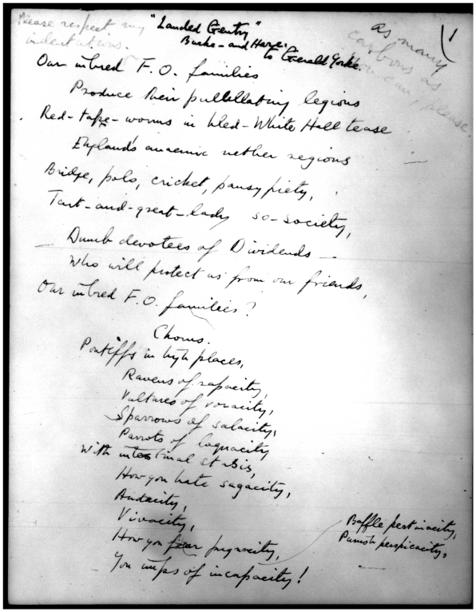 Please respect my
indentations.
as many
carbons as
you can, please
1
"Landed Gentry"
Burke-and-Hare.
to Gerald Yorke.
Our inbred F. O. families
Produce their pullulating legions
Red-tape-worms in Whed-White Hall tease
England's anaemic nether regions
Bridge, polo, cricket, pansy piety,
Tart-and-great-lady so-society,
Dumb devotees of Dividends —
Who will protect us from our friends,
Our inbred F. O. families?
Chorus.
Pontiffs in high places,
Ravens of rapacity,
Vultures of voracity,
Sparrows of salacity,
Parrots of loquacity
With intestinal stasis,
How you hate sagacity,
Audacity,
Vivacity,
How you fear pugnacity,
Baffle pertinacity,
Punish perspicacity,
You imps of incapacity!